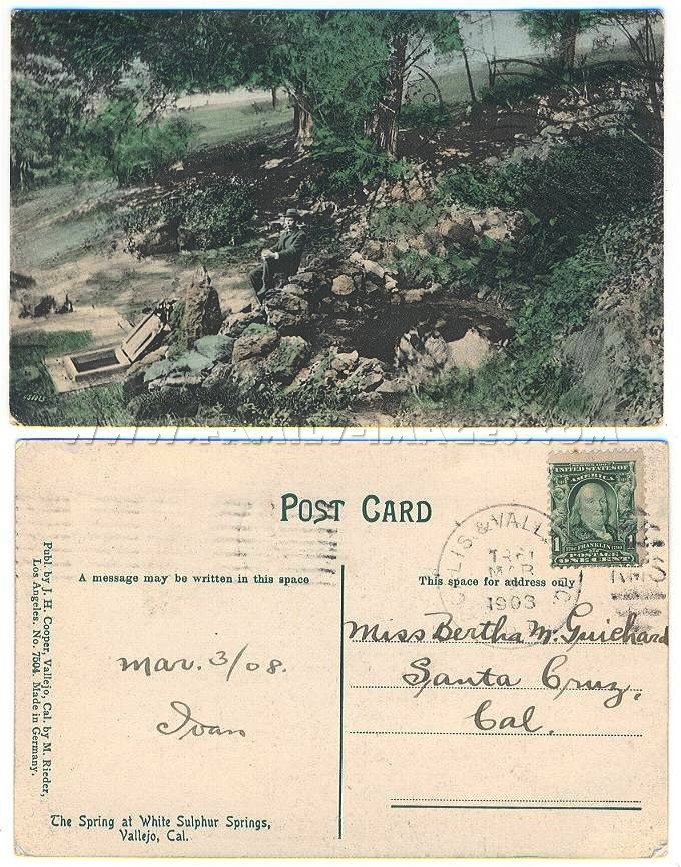 WWW.FAMILY-IMAGES.COM
POST CARD
UNITED STATES OF
AMERICA
1 FRANKLIN 1
POSTAGE
ONE CENT
LIS & VALL
MAR
1908
RMS
A message may be written in this space
This space for address only
Publ. by J. H. Cooper, Vallejo, Cal. by M. Rieder,
Los Angeles. No. 7504. Made in Germany.
Mar. 3/08.
Ivan
Miss Bertha M. Guichard
Santa Cruz,
Cal.
The Spring at White Sulphur Springs,
Vallejo, Cal.